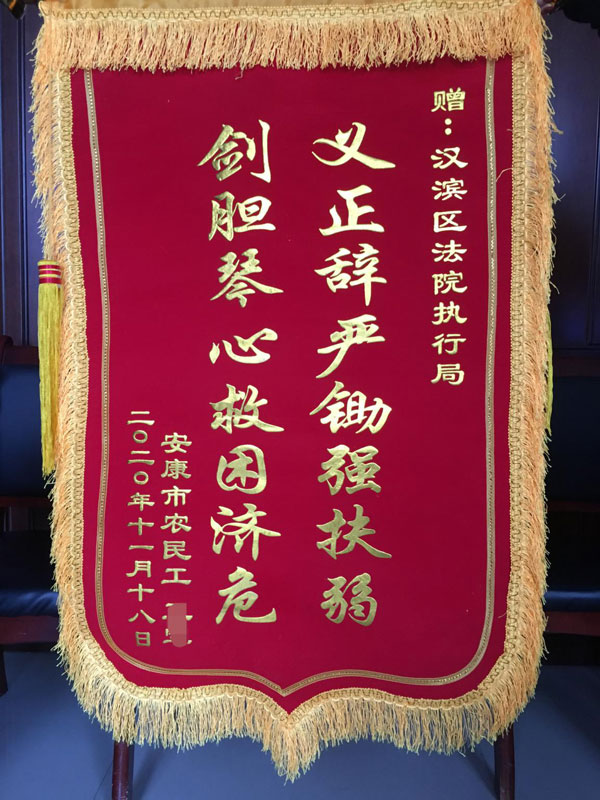 赠：汉滨区法院执行局
义正辞严锄强扶弱
剑胆琴心救困济危
安康市农民工
二〇二〇年十一月十八日